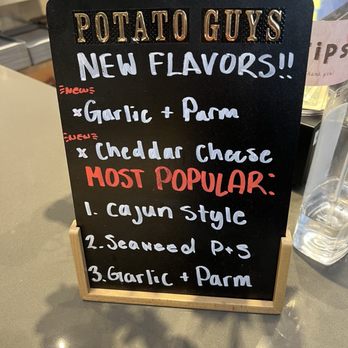 POTATO GUYS
NEW FLAVORS!!
NEW
x Garlic + Parm
NEW
x Cheddar Cheese
MOST POPULAR:
1. Cajun Style
2. Seaweed P+S
3. Garlic + Parm
Tips